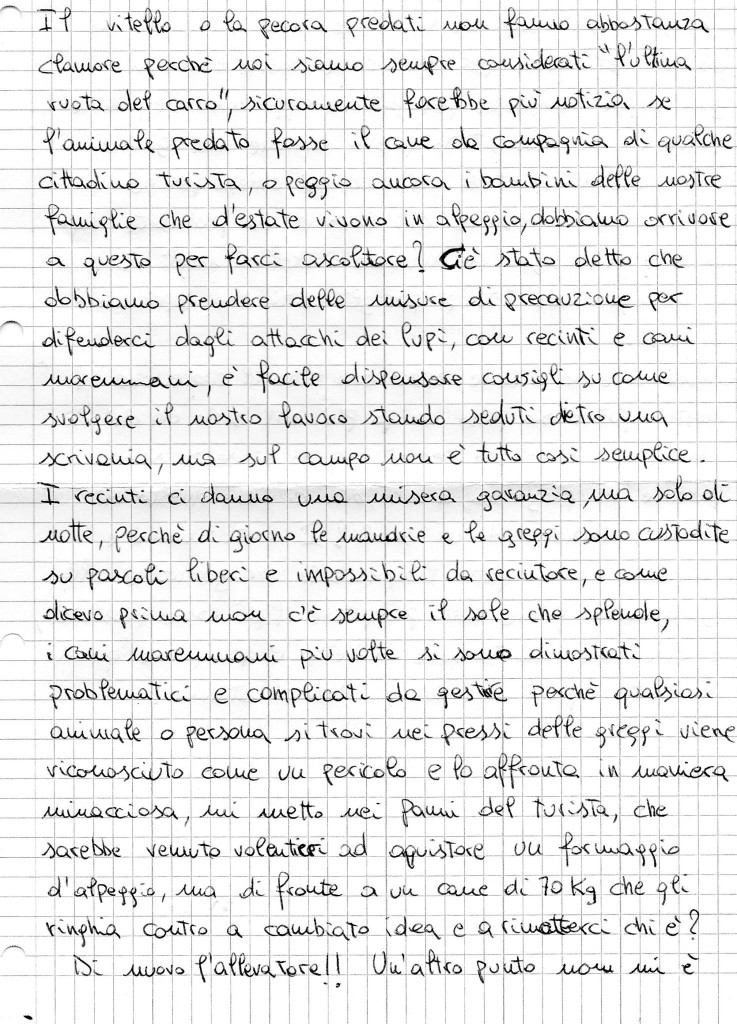 Il vitello o la pecora predati non fanno abbastanza
clamore perchè noi siamo sempre considerati "l'ultima
ruota del carro", sicuramente farebbe più notizia se
l'animale predato fosse il cane da compagnia di qualche
cittadino turista, o peggio ancora i bambini delle nostre
famiglie che d'estate vivono in alpeggio, dobbiamo arrivare
a questo per farci ascoltare? Ci è stato detto che
dobbiamo prendere delle misure di precauzione per
difenderci dagli attacchi dei lupi, con recinti e cani
maremmani, è facile dispensare consigli su come
svolgere il nostro lavoro stando seduti dietro una
scrivania, ma sul campo non è tutto così semplice.
I recinti ci danno una misera garanzia, ma solo di
notte, perchè di giorno le mandrie e le greggi sono custodite
su pascoli liberi e impossibili da recintare, e come
dicevo prima non c'è sempre il sole che splende,
i cani maremmani più volte si sono dimostrati
problematici e complicati da gestire perchè qualsiasi
animale o persona si trovi nei pressi delle greggi viene
riconosciuto come un pericolo e lo affronta in maniera
minacciosa, mi metto nei panni del turista, che
sarebbe venuto volentieri ad aquistare un formaggio
d'alpeggio, ma di fronte a un cane di 70 Kg che gli
ringhia contro a cambiato idea e a rimetterci chi è?
Di nuovo l'allevatore!! Un'altro punto non mi è